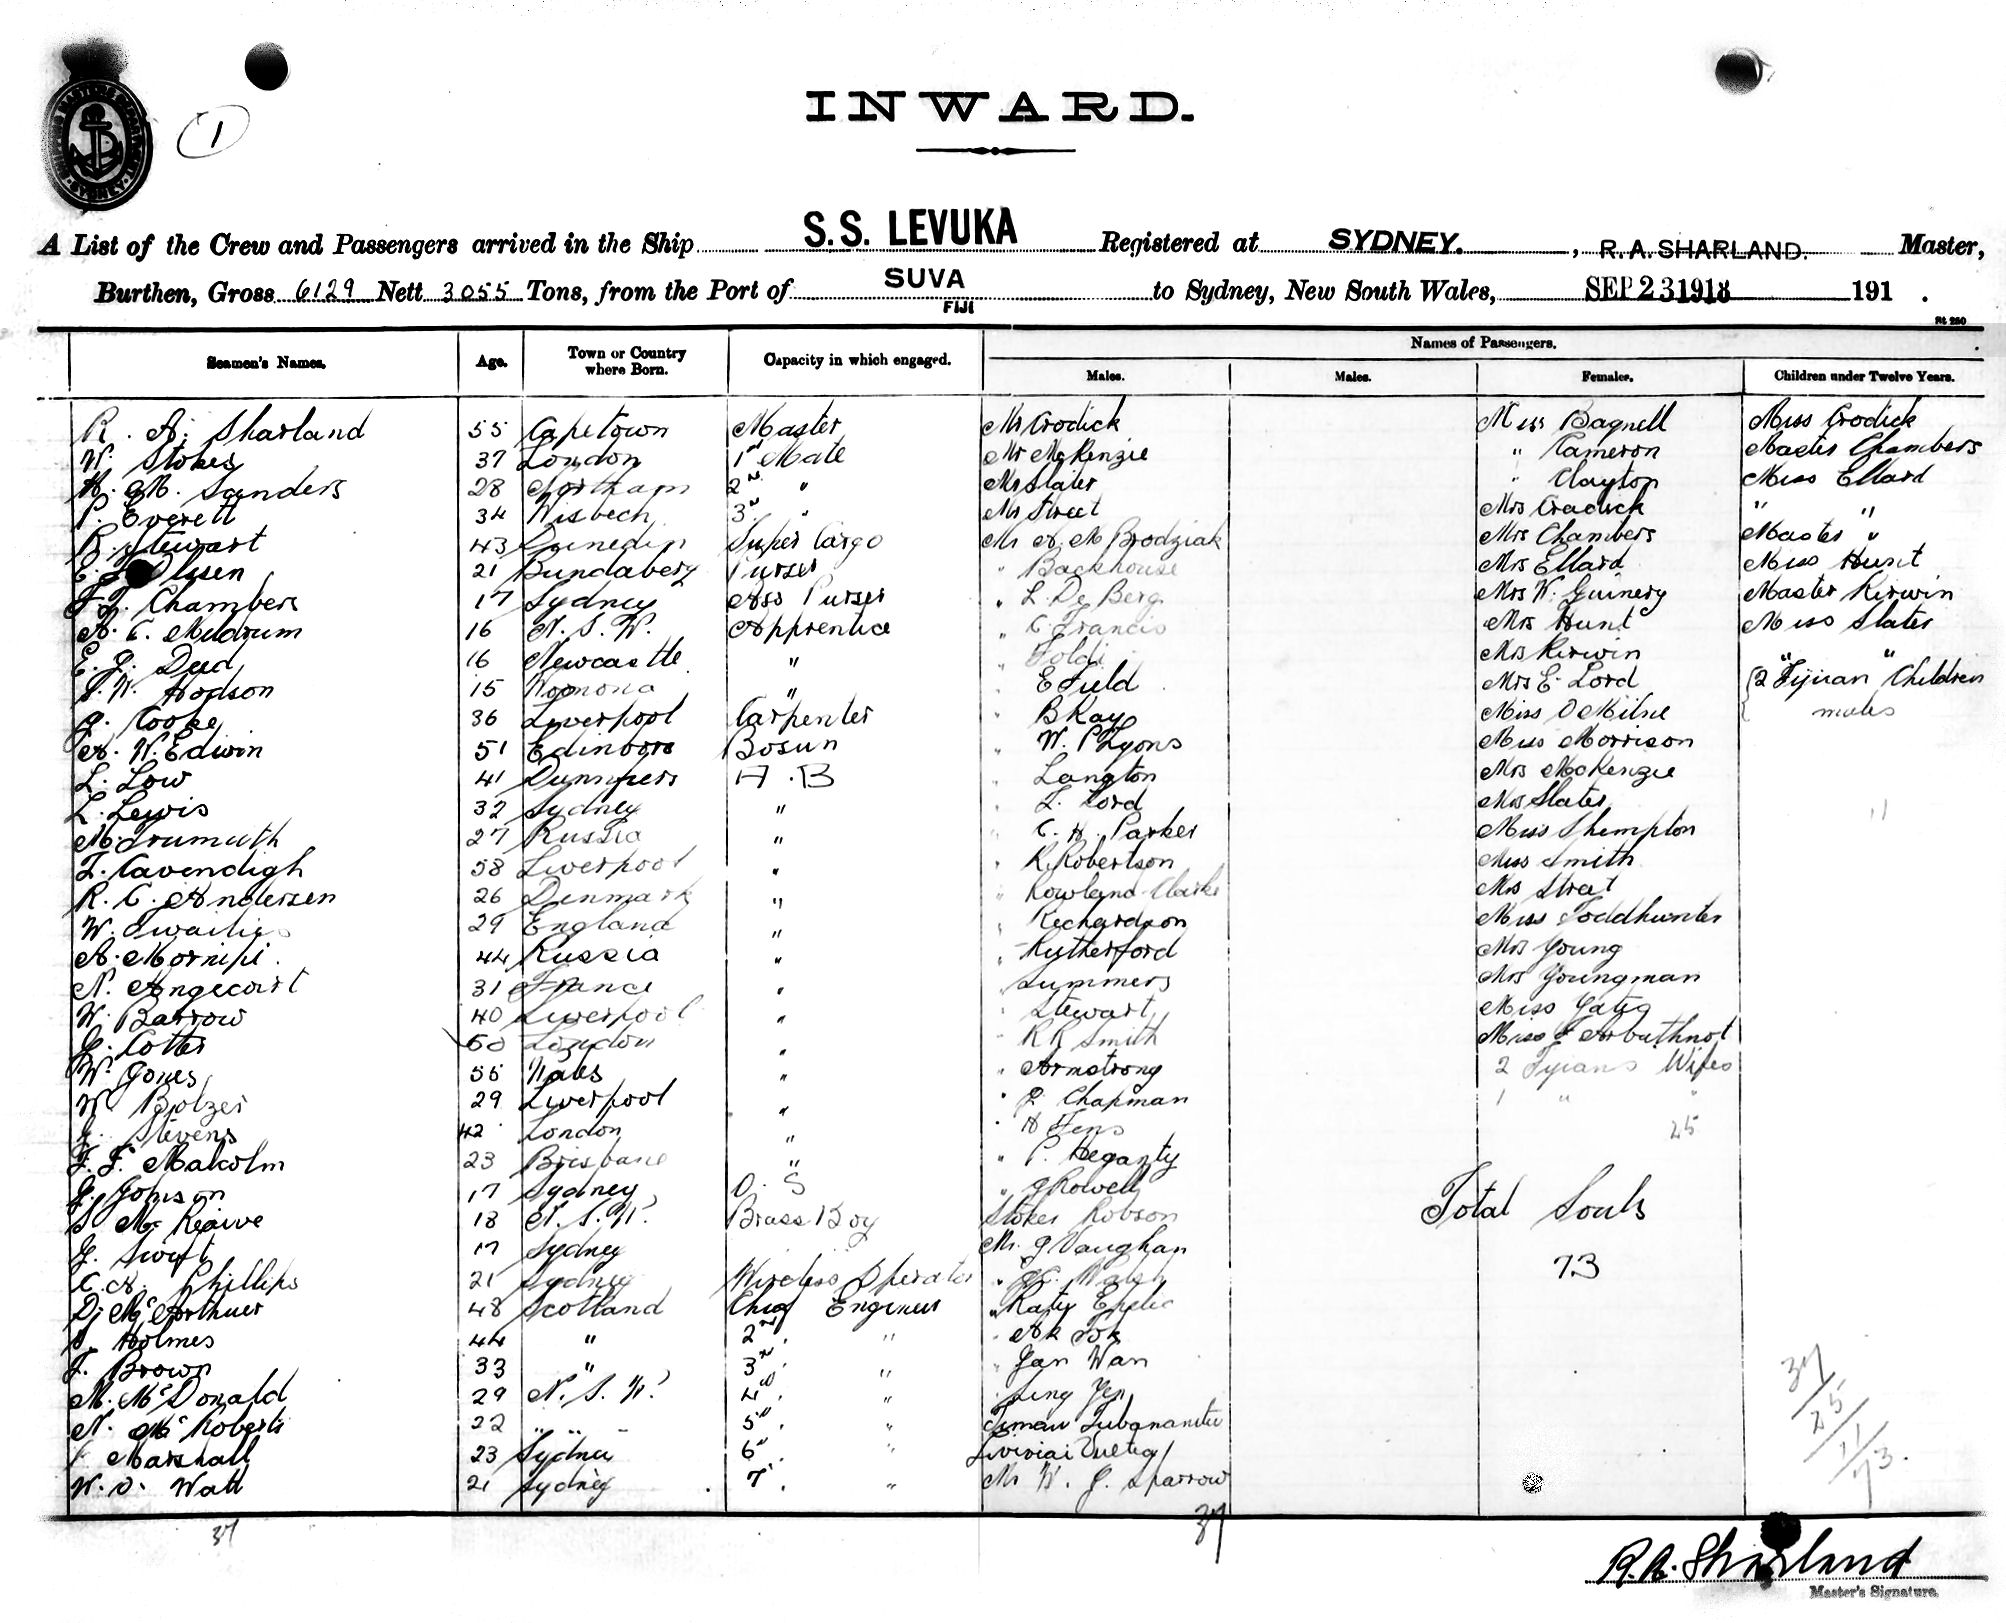 1
INWARD.
A List of the Crew and Passengers arrived in the Ship S.S. LEVUKA Registered at SYDNEY. , R. A. SHARLAND. Master,
Burthen, Gross 6129 Nett 3055 Tons, from the Port of SUVA FIJI to Sydney, New South Wales, SEP 23 1918 191 .
Names of Passengers.
Seamen's Names. Age. Town or Country where Born. Capacity in which engaged. Males. Males. Females. Children under Twelve Years.
R. A. Sharland 55 Capetown Master Mr Crodick Miss Bagnell Miss Crodick
W. Stokes 37 London 1st Mate Mr McKenzie " Cameron Master Chambers
H. M. Sanders 28 2nd " Mr Slater " Clayton Miss Ellard
P. Everett 34 Wisbech 3rd " Mr Street Mrs Cradick " "
R. Stewart 43 Dunedin Super Cargo Mr A. M Brodziak Mrs Chambers Master "
Olsen 21 Bundaberg Purser " Backhouse Mrs Ellard Miss Hunt
Chambers 17 Sydney Ass Purser " L. De Berg Mrs W. Guinery Master Kerwin
A. C. 16 N. S. W. Apprentice " C. Francis Mrs Hunt Miss Slater
E. J. 16 Newcastle " " Foldi Mrs Kerwin " "
Hodson 15 " " E Fuld Mrs E. Lord {2 Fijian Children
J. Cooke 36 Liverpool Carpenter " B Kay Miss O Milne males
A. W. Edwin 51 Bosun " W. P Lyons Miss Morrison
L. Low 41 A. B " Langton Mrs McKenzie
L. Lewis 32 Sydney " " L. Lord Mrs Slater
27 Russia " " C. H. Parker Miss Shempton
Cavendigh 58 Liverpool " " R. Robertson Miss Smith
R. C. Andersen 26 Denmark " " Rowland Clarke Mrs Street
W. 29 England " " Richardson Miss Toddhunter
A. 44 Russia " " Rutherford Mrs Young
N. Angecourt 31 France " " Summers Mrs Youngman
W. Barrow 40 Liverpool " " Stewart Miss Yates
J. Cotter London " " R R Smith Miss Arbuthnot
W. Jones 55 Wales " " Armstrong 2 Fijians Wifes
W 29 Liverpool " " J. Chapman 1 " "
J. Stevens 42 London " " H Fens 25
Malcolm 23 Brisbane " " P. Heganty
J. Johnson 17 Sydney O. S " J Rowell Total Souls
18 N. S. W. Brass Boy Stokes Robson
J. Swift 17 Sydney Mr. J Vaughan 73
C. A. Phillips 21 Sydney Wireless Operator " Walsh
D. McArthur 48 Scotland Chief Engineer "
Holmes 44 " 2nd " "
Brown 33 " 3rd " " Wan
M. McDonald 29 N. S. W. 4th " "
N. McRoberts 22 " " 5th "
Marshall 23 Sydney 6th "
W. O. Watt 21 Sydney 7th " Mr W. J. Sparrow
37
25
11
73.
37 37
R. A. Sharland
Master's Signature.